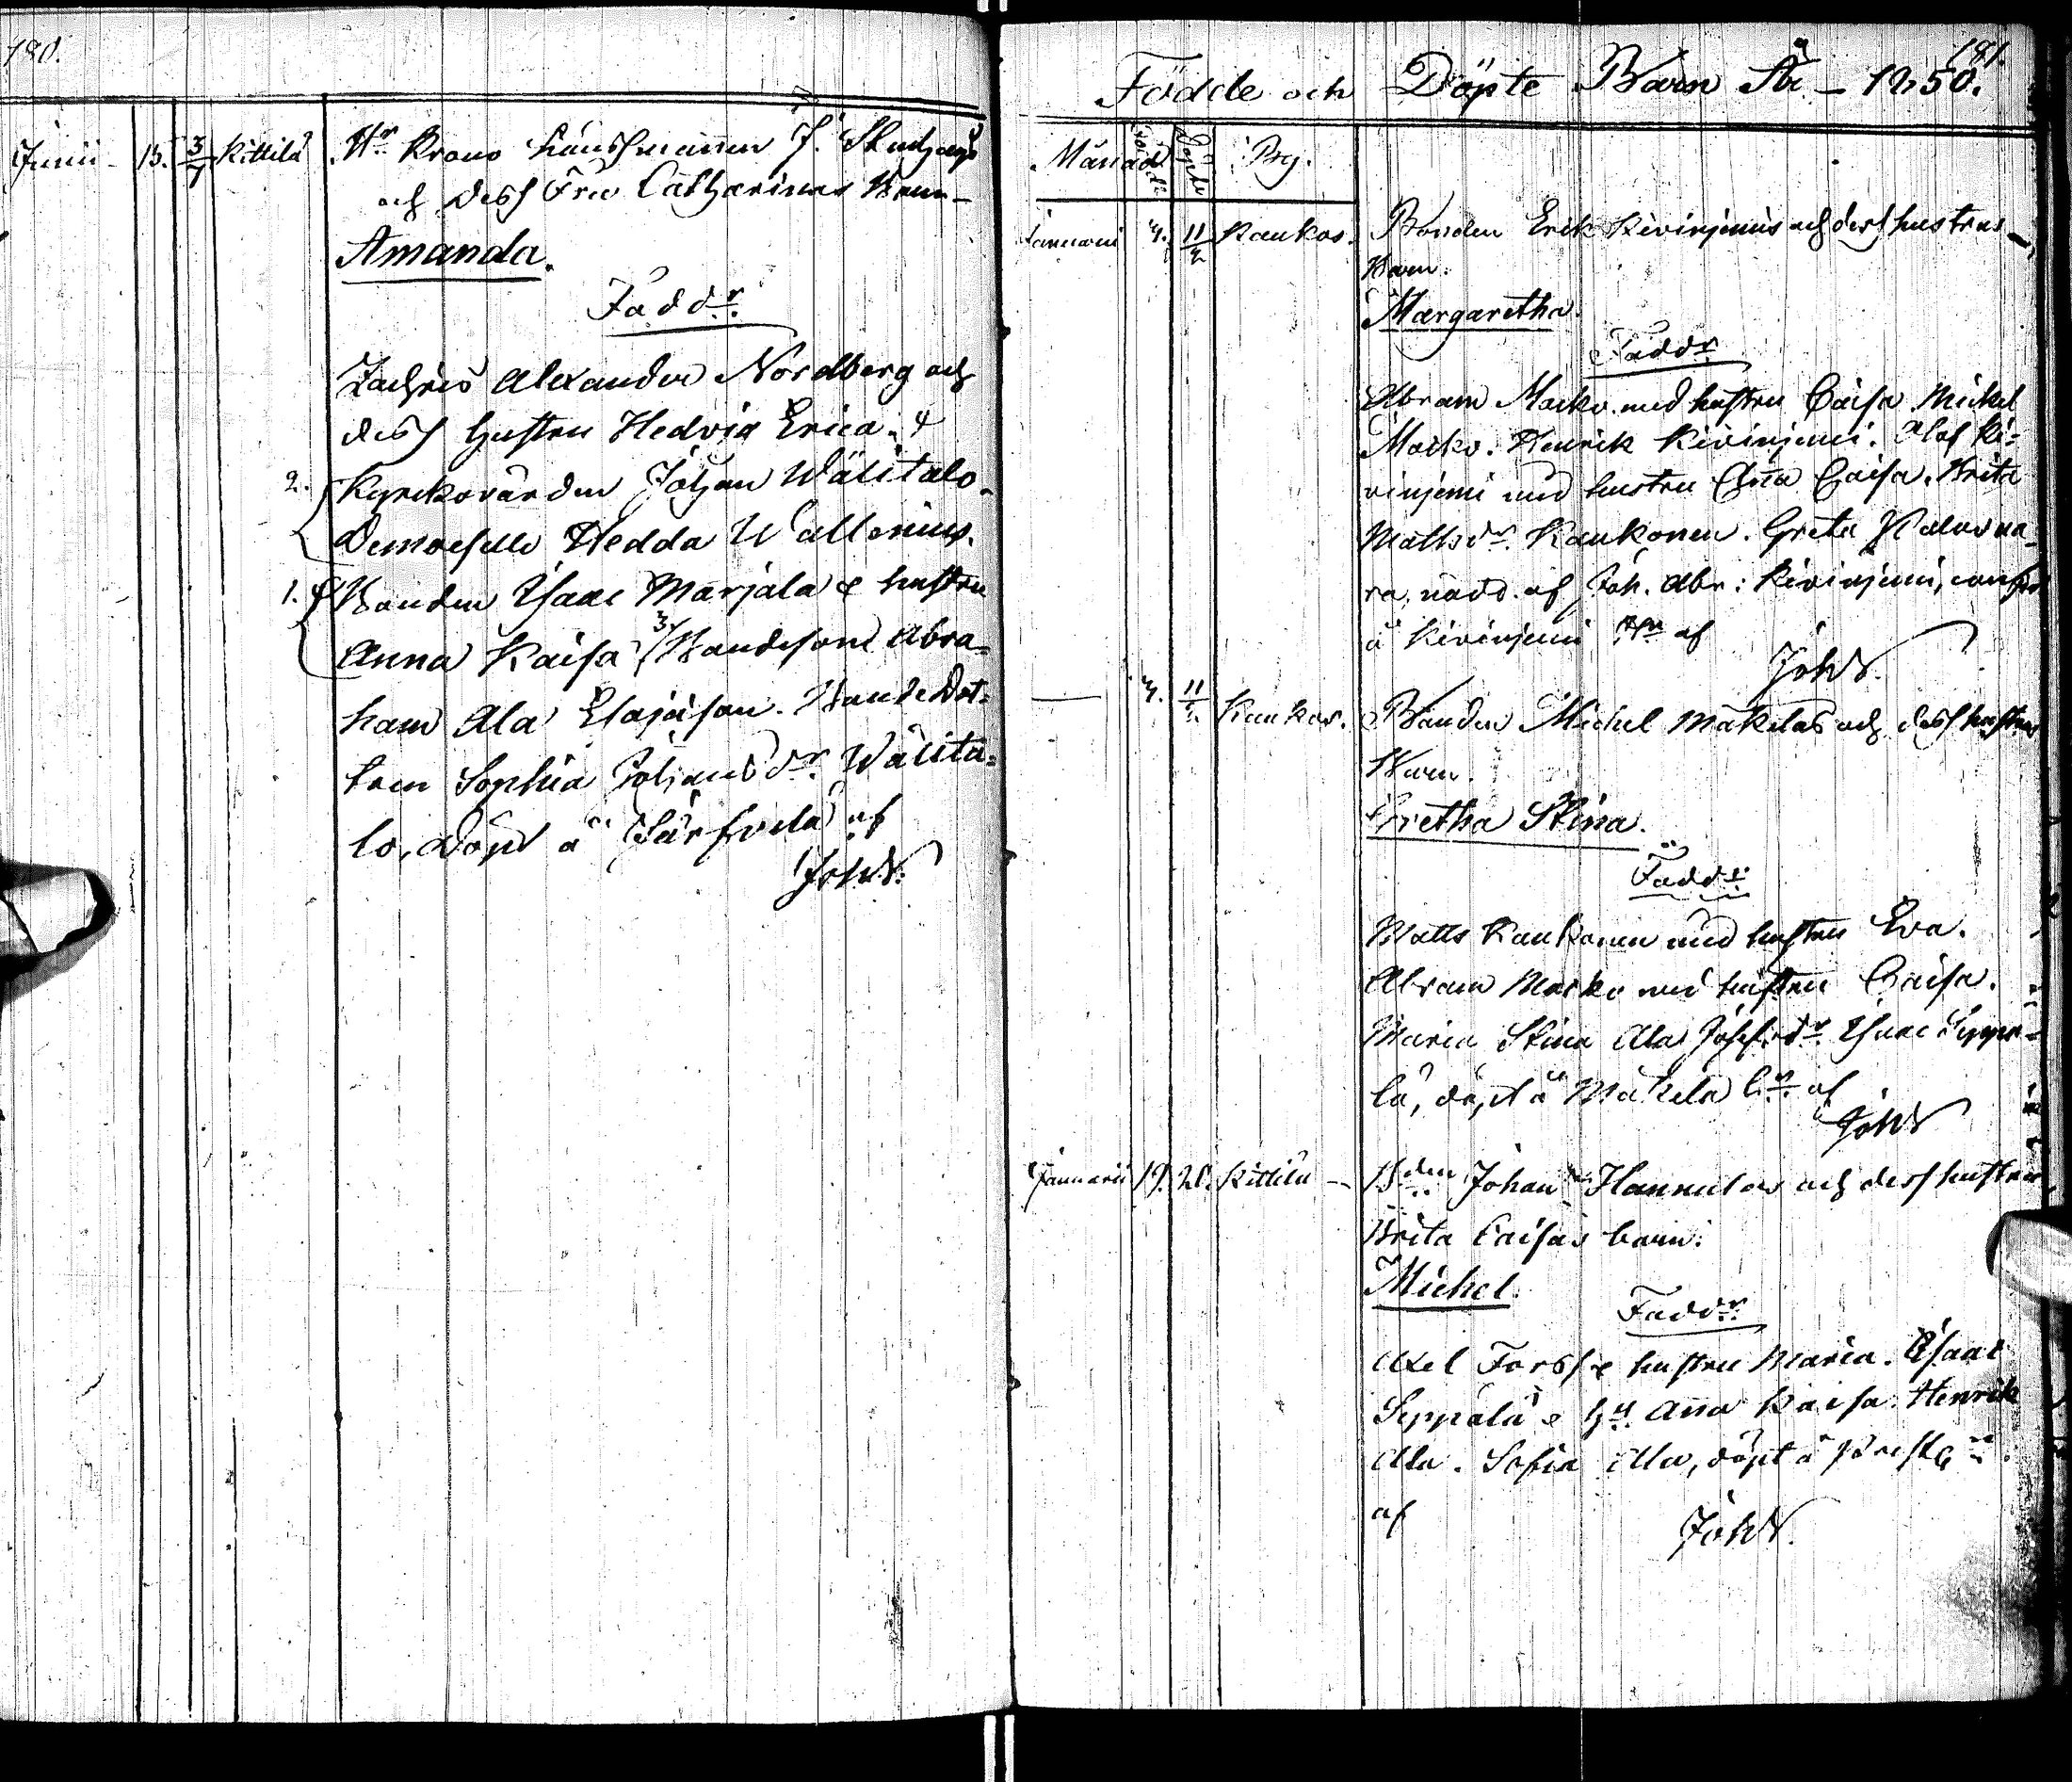 180.
Junii 15. 3/7 Kittilä Hr Krono Länssmannen J.
och dess Fru Catharinas Barn
Amanda.
Faddr
Zachris Alexander Nordberg och
dess hustru Hedvig Erica. 4
2. Kyrkovärden Johan Wälitalo.
Demoiselle Hedda Wallenius.
1. Bonden Isaac Marjala & hustru
Anna Kaisa 3 Bondesone Abra=
ham Ala Bondedot=
tren Sophia Johansdr Wälita=
lo, döpt å af
JohW.
181.
Födde och Döpte Barn År – 1850.
Månad Födde Döpte By.
Januari 4. 11/ Kaukos. Bonden Erik Kivinjemis och dess hustrus
Barn.
Margaretha.
Faddr
Abram Marko med hustru Caisa. Mickel
Marko. Henrik Kivinjemi. Olof Ki=
vinjemi med hustru Anna Caisa. Brita
Mattsdr. Kaukonen. Greta
ra, nödd. af Joh. Abr: Kivinjemi,
å Kivinjemi af
JohW.
— 4. 11/ Kaukos. Bonden Michel Mäkeläs och dess hustrus
Barn.
Gretha Stina.
Faddr
Matts Kaukonen med hustru Eva.
Abram Marko med hustru Caisa.
Maria Stina Ala Josefsdr Isaac Seppä=
lä, döpt å Mäkelä af
JohW
Januarii 19. 20. Kittilä — Bden Johan Hannulas och dess hustrus
Brita Caisas barn:
Michel.
Faddr
Axel Forss & hustru Maria. Isaac
Seppälä & hu Anna Kaisa. Henrik
Ala. Sofia Ala, döpt å Prestg
af
JohW.